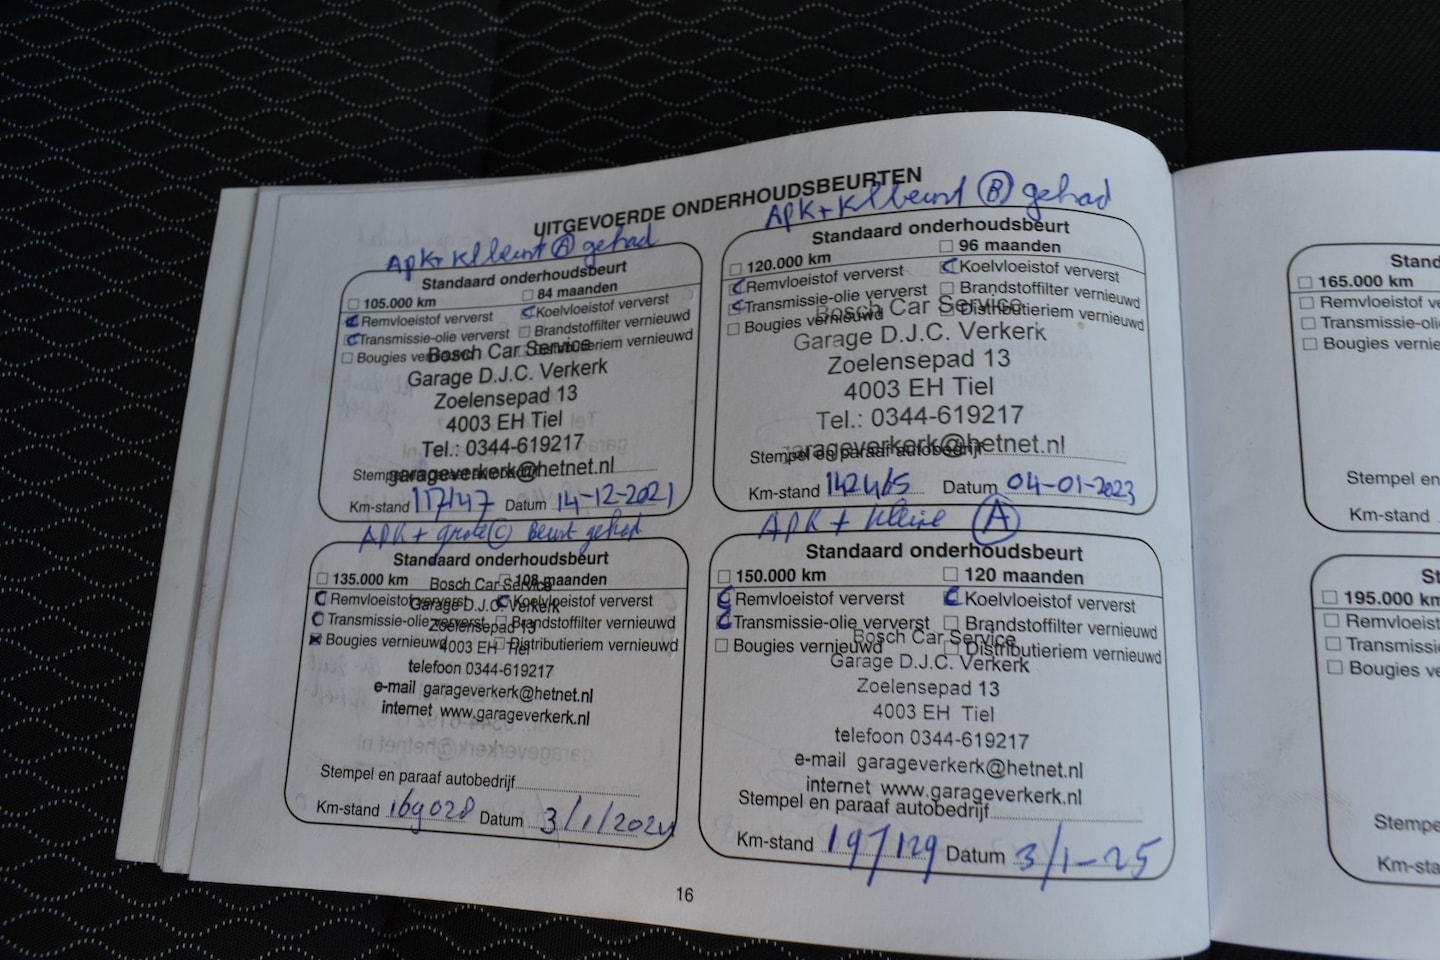 UITGEVOERDE ONDERHOUDSBEURTEN
APK + kl beurt (A) gehad
Standaard onderhoudsbeurt
105.000 km 84 maanden
Remvloeistof ververst Koelvloeistof ververst
Transmissie-olie ververst Brandstoffilter vernieuwd
Bougies vernieuwd Distributieriem vernieuwd
Bosch Car Service
Garage D.J.C. Verkerk
Zoelensepad 13
4003 EH Tiel
Tel.: 0344-619217
garageverkerk@hetnet.nl
Stempel en paraaf autobedrijf
Km-stand 117147 Datum 14-12-2021
APK + kl beurt (B) gehad
Standaard onderhoudsbeurt
120.000 km 96 maanden
Remvloeistof ververst Koelvloeistof ververst
Transmissie-olie ververst Brandstoffilter vernieuwd
Bougies vernieuwd Distributieriem vernieuwd
Bosch Car Service
Garage D.J.C. Verkerk
Zoelensepad 13
4003 EH Tiel
Tel.: 0344-619217
garageverkerk@hetnet.nl
Stempel en paraaf autobedrijf
Km-stand 142465 Datum 04-01-2023
APK + grote (C) Beurt gehad
Standaard onderhoudsbeurt
135.000 km 108 maanden
Remvloeistof ververst Koelvloeistof ververst
Transmissie-olie ververst Brandstoffilter vernieuwd
Bougies vernieuwd Distributieriem vernieuwd
Bosch Car Service
Garage D.J.C. Verkerk
Zoelensepad 13
4003 EH Tiel
telefoon 0344-619217
e-mail garageverkerk@hetnet.nl
internet www.garageverkerk.nl
Stempel en paraaf autobedrijf
Km-stand 169028 Datum 3/1/2024
APK + kleine (A)
Standaard onderhoudsbeurt
150.000 km 120 maanden
Remvloeistof ververst Koelvloeistof ververst
Transmissie-olie ververst Brandstoffilter vernieuwd
Bougies vernieuwd Distributieriem vernieuwd
Bosch Car Service
Garage D.J.C. Verkerk
Zoelensepad 13
4003 EH Tiel
telefoon 0344-619217
e-mail garageverkerk@hetnet.nl
internet www.garageverkerk.nl
Stempel en paraaf autobedrijf
Km-stand 197129 Datum 3/1-25
16
Stand
165.000 km
Remvloeist
Transmissie-oli
Bougies vernie
Stempel en
Km-stand
St
195.000 km
Remvloeist
Transmissi
Bougies ve
Stempe
Km-sta